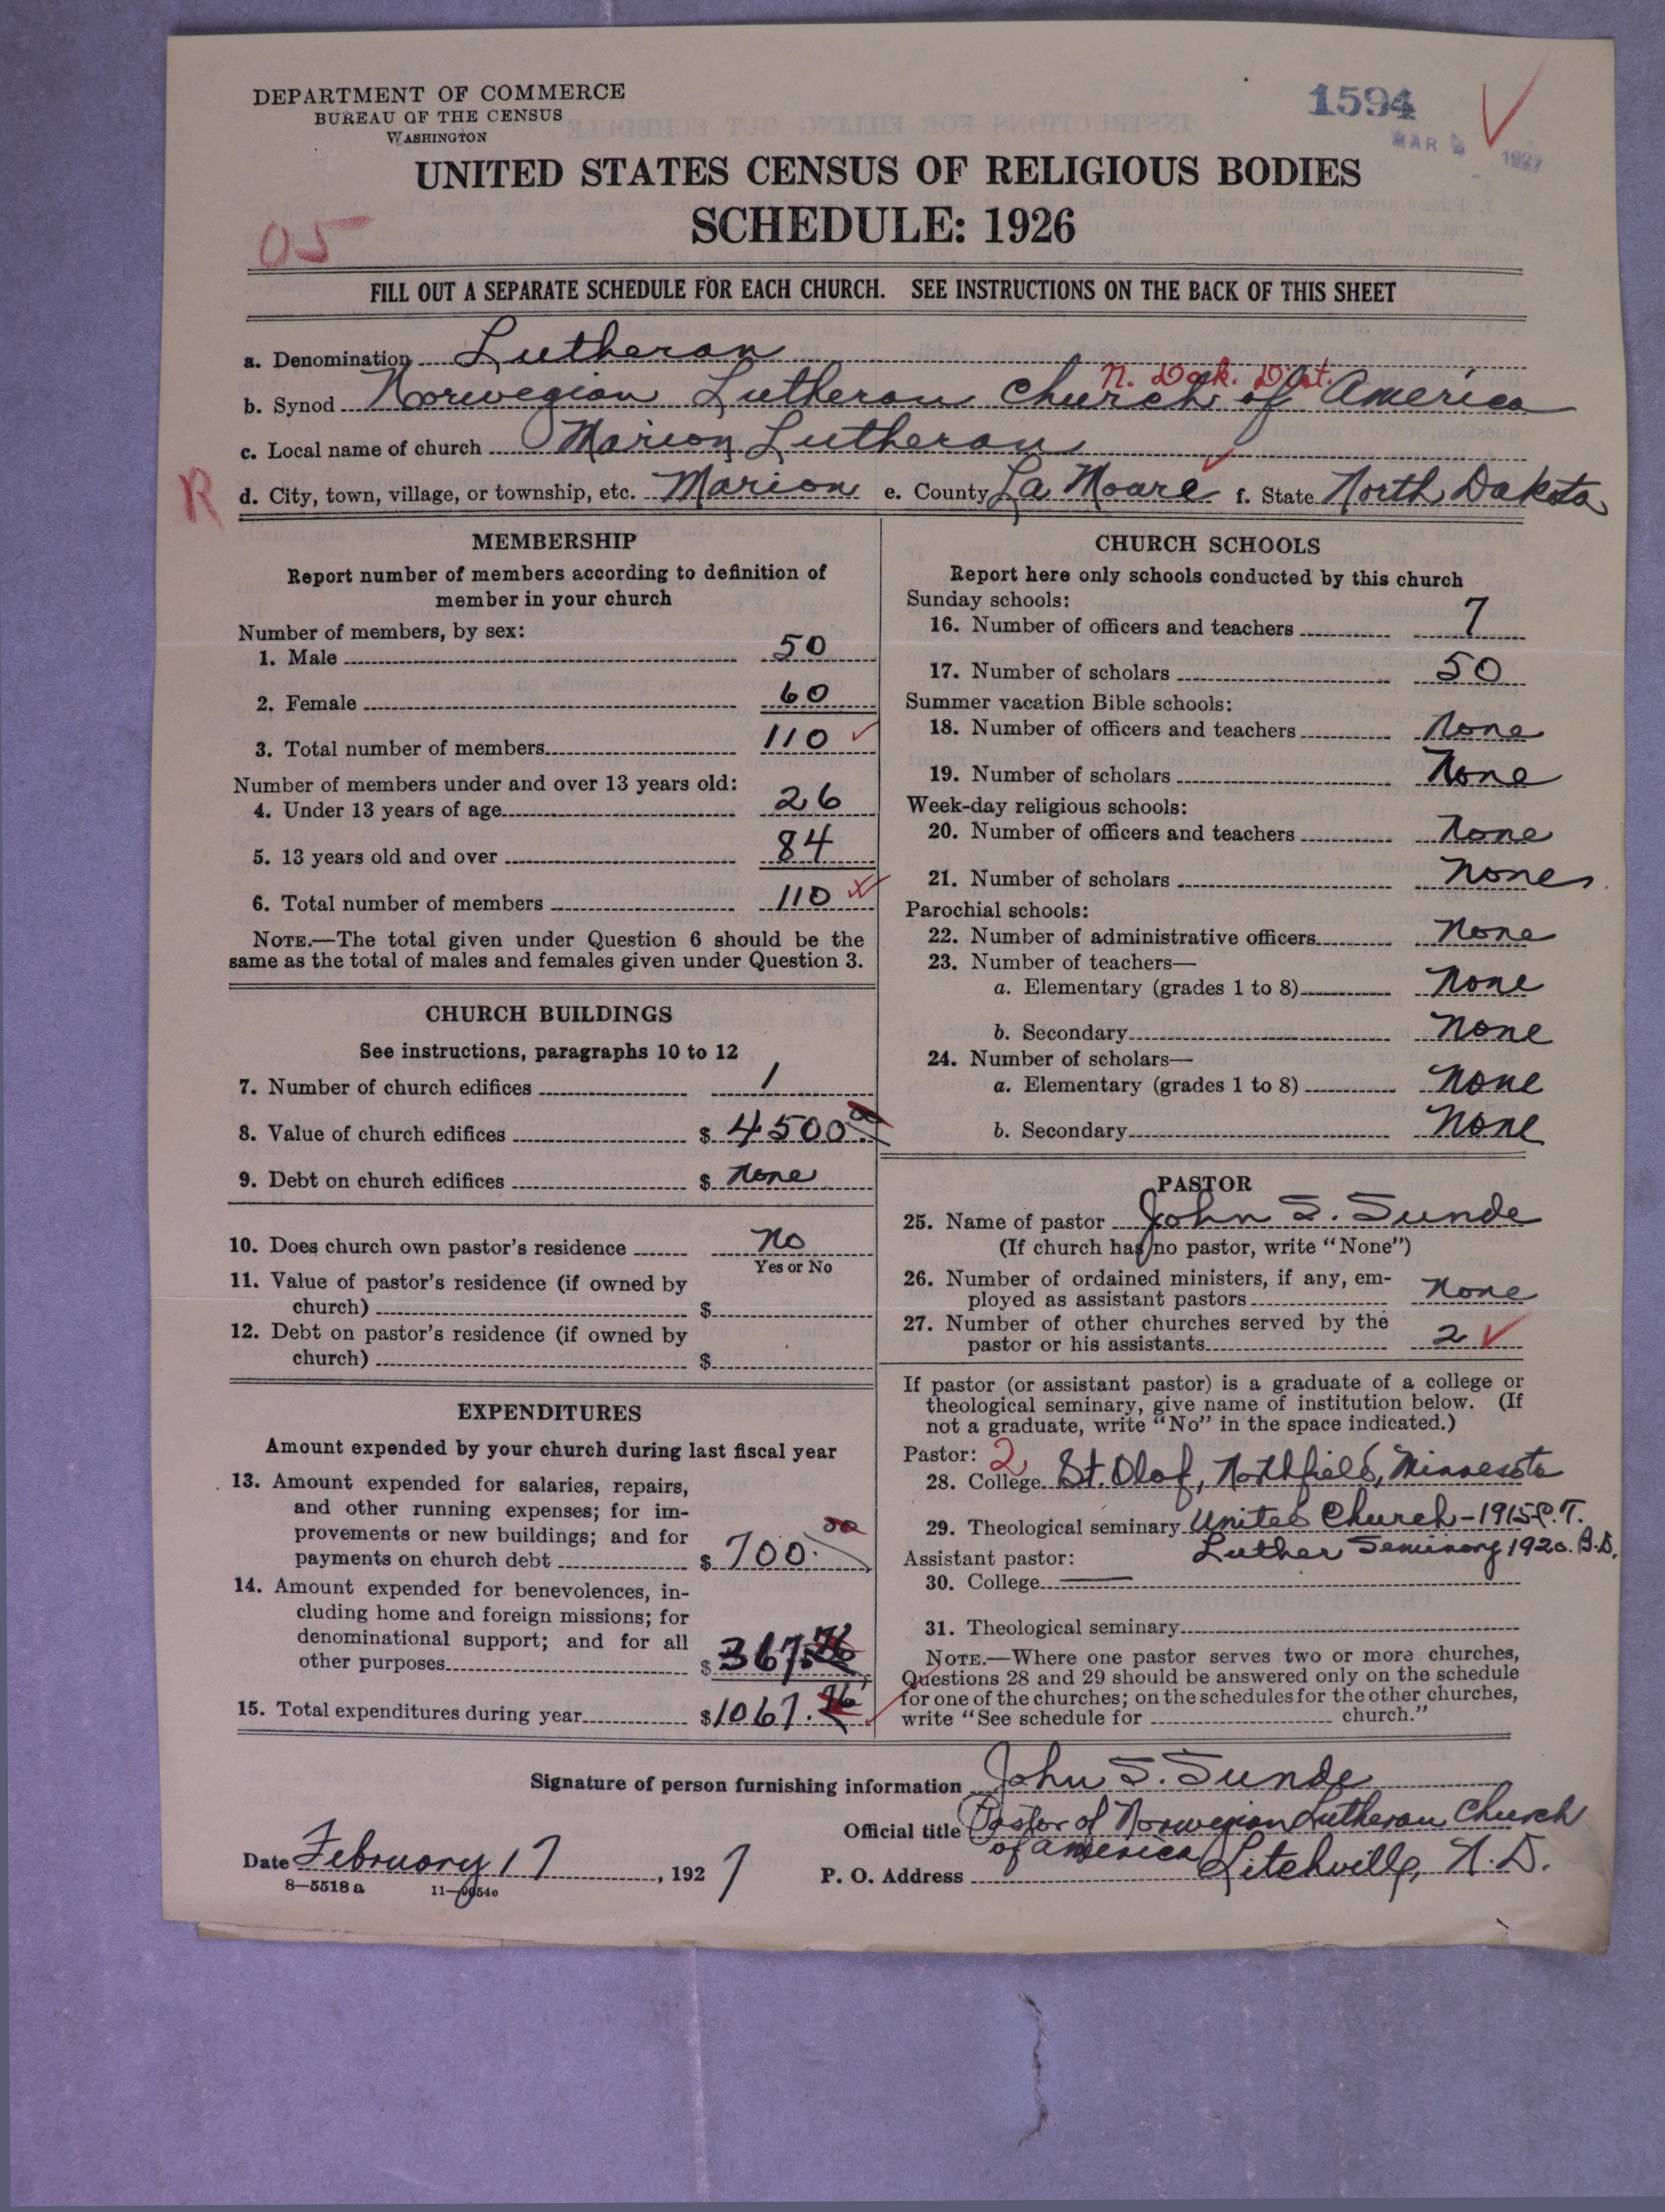 DEPARTMENT OF COMMERCE
BUREAU OF THE CENSUS
WASHINGTON
1594
MAR 1927
UNITED STATES CENSUS OF RELIGIOUS BODIES
SCHEDULE: 1926
05
FILL OUT A SEPARATE SCHEDULE FOR EACH CHURCH. SEE INSTRUCTIONS ON THE BACK OF THIS SHEET
a. Denomination Lutheran
N. Dak. Dist.
b. Synod Norwegian Lutheran Church of America
c. Local name of church Marion Lutheran
R
d. City, town, village, or township, etc. Marion e. County La Moure f. State North Dakota
MEMBERSHIP
Report number of members according to definition of
member in your church
Number of members, by sex:
1. Male 50
2. Female 60
3. Total number of members 110
Number of members under and over 13 years old:
4. Under 13 years of age 26
5. 13 years old and over 84
6. Total number of members 110
NOTE.—The total given under Question 6 should be the
same as the total of males and females given under Question 3.
CHURCH BUILDINGS
See instructions, paragraphs 10 to 12
7. Number of church edifices 1
8. Value of church edifices $ 4500.00
9. Debt on church edifices $ None
10. Does church own pastor's residence No
Yes or No
11. Value of pastor's residence (if owned by
church) $
12. Debt on pastor's residence (if owned by
church) $
EXPENDITURES
Amount expended by your church during last fiscal year
13. Amount expended for salaries, repairs,
and other running expenses; for im-
provements or new buildings; and for
payments on church debt $ 700.00
14. Amount expended for benevolences, in-
cluding home and foreign missions; for
denominational support; and for all
other purposes $ 367.
15. Total expenditures during year $ 1067.
CHURCH SCHOOLS
Report here only schools conducted by this church
Sunday schools:
16. Number of officers and teachers 7
17. Number of scholars 50
Summer vacation Bible schools:
18. Number of officers and teachers None
19. Number of scholars None
Week-day religious schools:
20. Number of officers and teachers None
21. Number of scholars None
Parochial schools:
22. Number of administrative officers None
23. Number of teachers—
a. Elementary (grades 1 to 8) None
b. Secondary None
24. Number of scholars—
a. Elementary (grades 1 to 8) None
b. Secondary None
PASTOR
25. Name of pastor John S. Sunde
(If church has no pastor, write "None")
26. Number of ordained ministers, if any, em-
ployed as assistant pastors None
27. Number of other churches served by the
pastor or his assistants 2
If pastor (or assistant pastor) is a graduate of a college or
theological seminary, give name of institution below. (If
not a graduate, write "No" in the space indicated.)
Pastor: 2
28. College St. Olaf, Northfield, Minnesota
29. Theological seminary United Church - 1915 C.T.
Luther Seminary 1920. B.D.
Assistant pastor:
30. College
31. Theological seminary
NOTE.—Where one pastor serves two or more churches,
Questions 28 and 29 should be answered only on the schedule
for one of the churches; on the schedules for the other churches,
write "See schedule for church."
Signature of person furnishing information John S. Sunde
Official title Pastor of Norwegian Lutheran Church
of America
Date February 17, 1927
P. O. Address Litchville, N.D.
8—5518 a